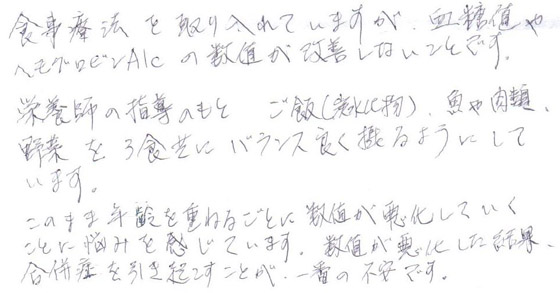 食事療法を取り入れていますが、血糖値や
ヘモグロビンA1cの数値が改善しないことです。
栄養師の指導のもと ご飯(炭水化物)、魚や肉類、
野菜を3食共にバランス良く摂るようにして
います。
このまま年齢を重ねるごとに数値が悪化していく
ことに悩みを感じています。数値が悪化した結果、
合併症を引き起こすことが、一番の不安です。